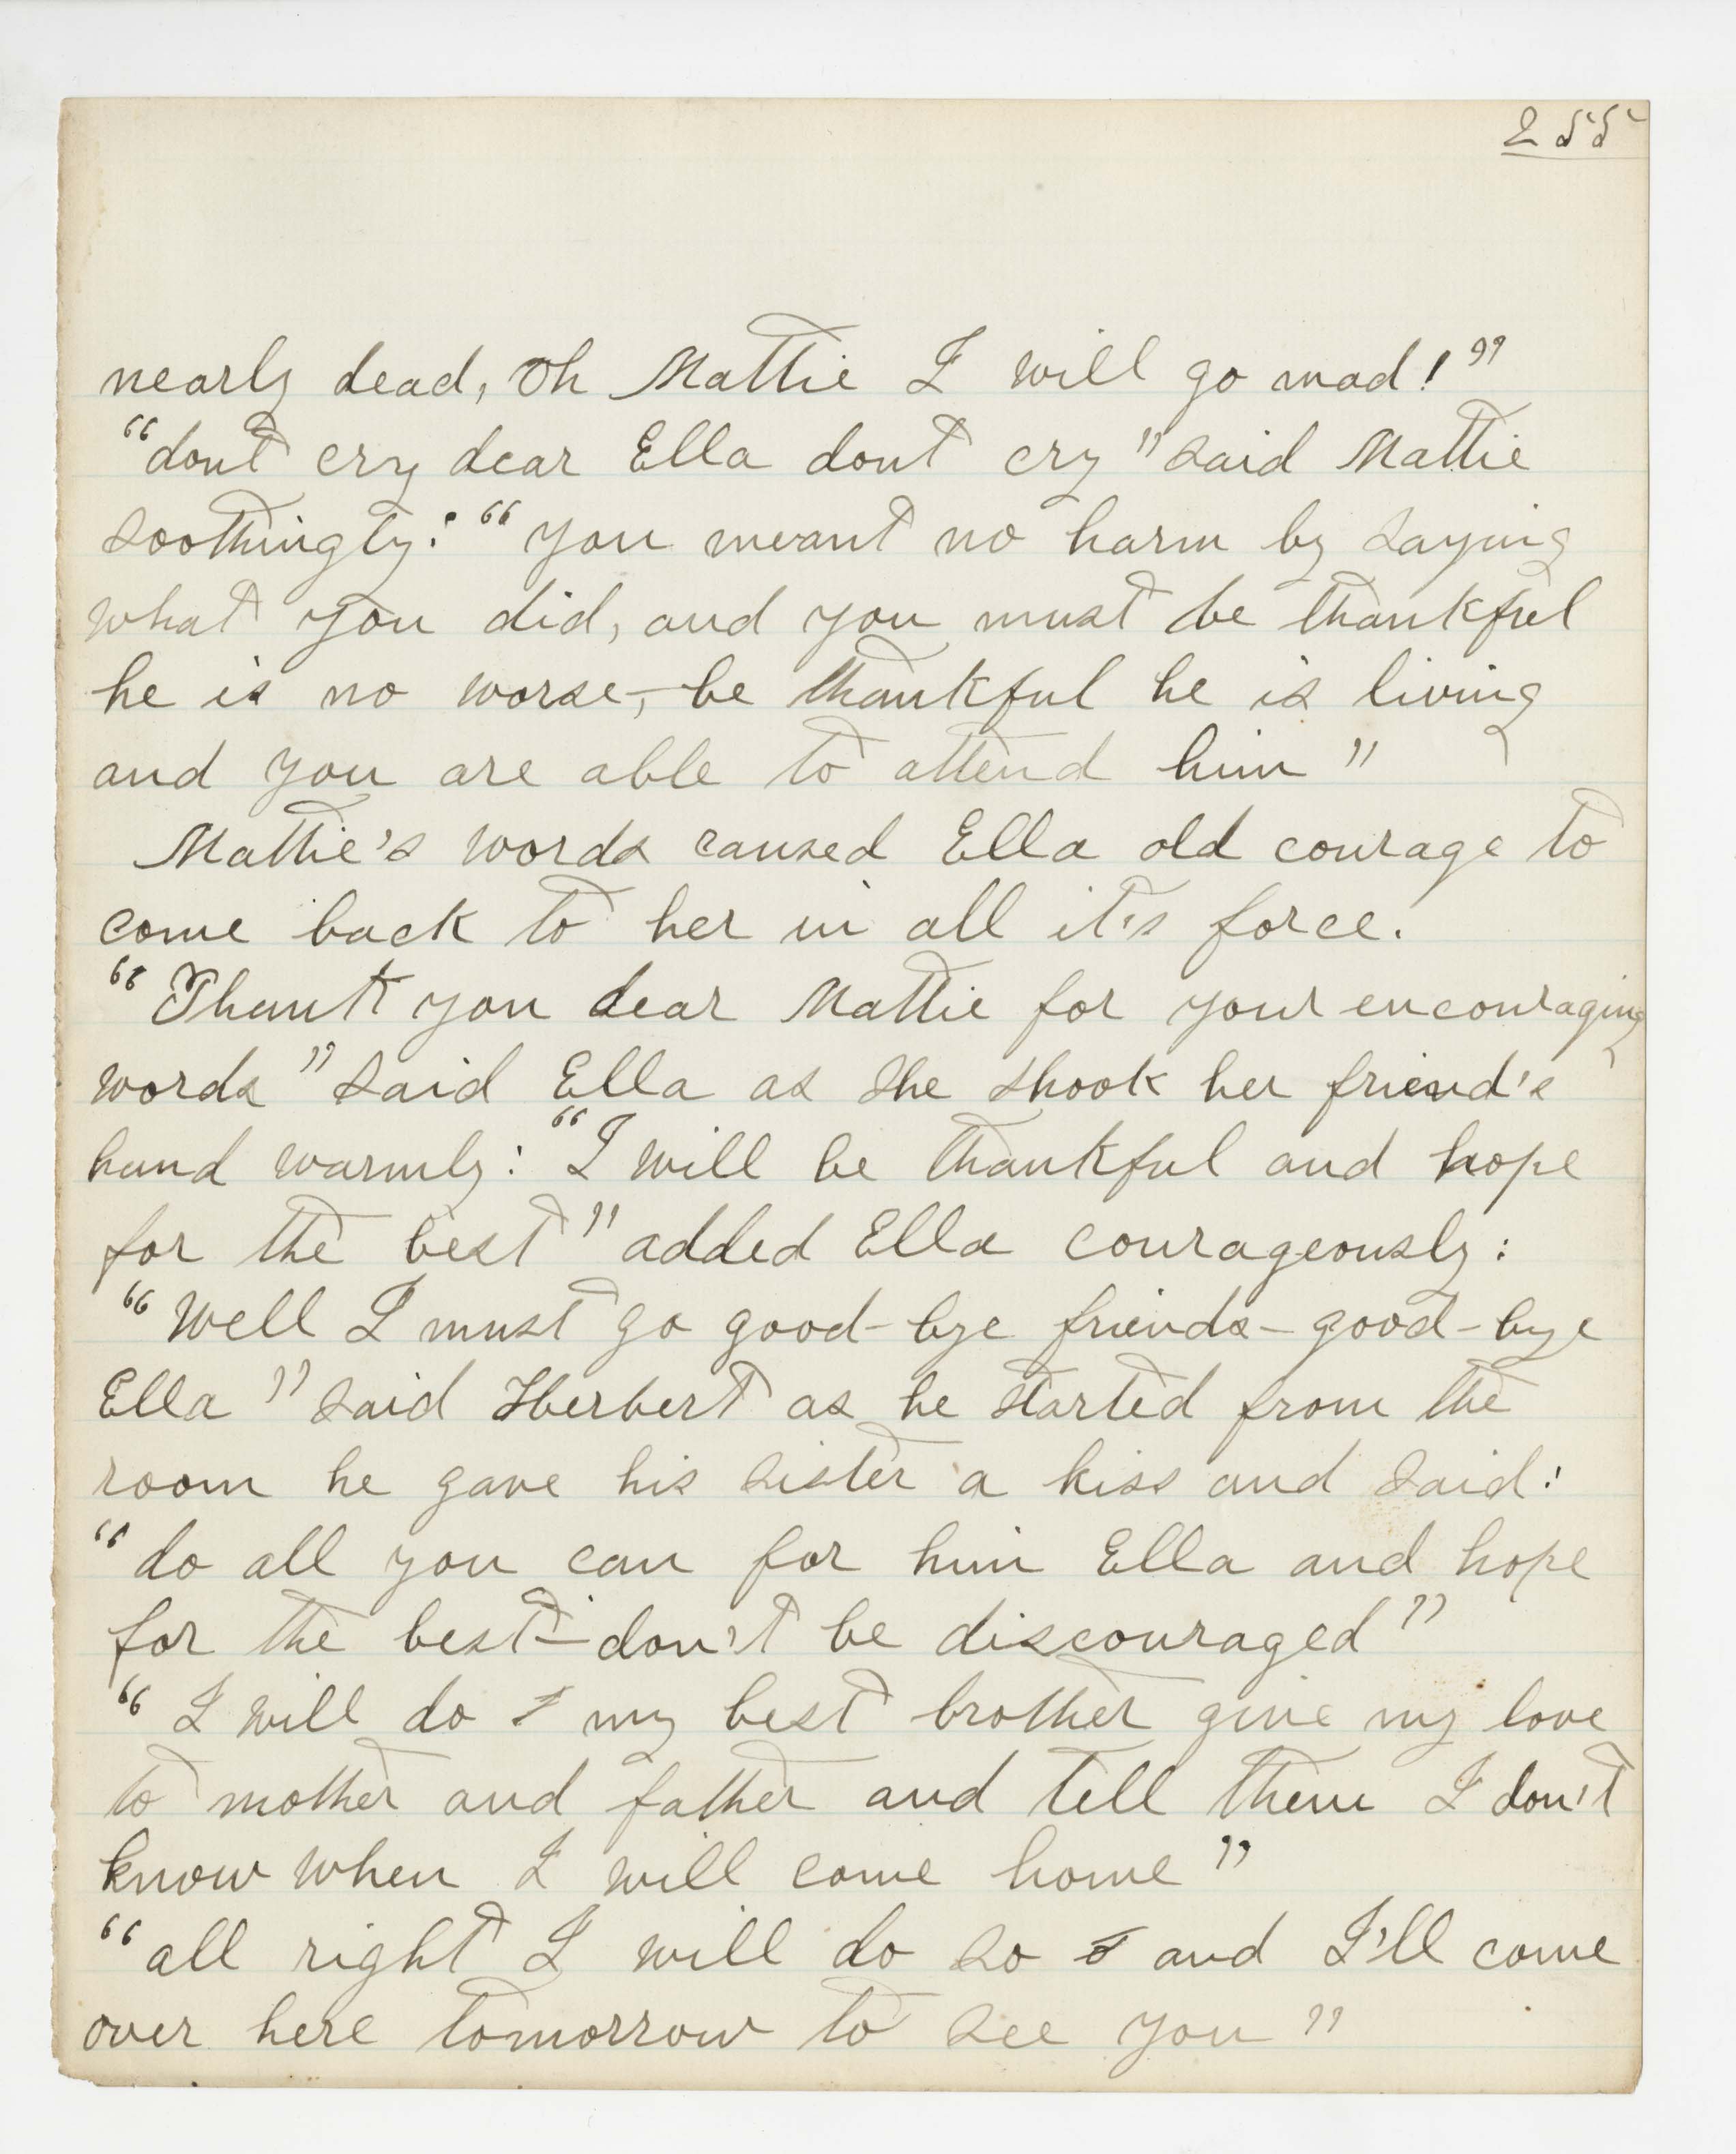 255
nearly dead, Oh Mattie I will go mad!"
"dont cry dear Ella dont cry" said Mattie
soothingly: "you meant no harm by saying
what you did, and you must be thankful
he is no worse,-be thankful he is living
and you are able to attend him"
Mattie's words caused Ella old courage to
come back to her in all it's force.
"Thank you dear Mattie for your encouraging
words" said Ella as she shook her friend's
hand warmly: "I will be thankful and hope
for the best" added Ella courageously:
"Well I must go good-bye friends-good-bye
Ella" said Herbert as he started from the
room he gave his sister a kiss and said:
"do all you can for him Ella and hope
for the best-don't be discouraged"
"I will do my best brother give my love
to mother and father and tell them I don't
know when I will come home"
"all right I will do so and I'll come
over here tomorrow to see you"